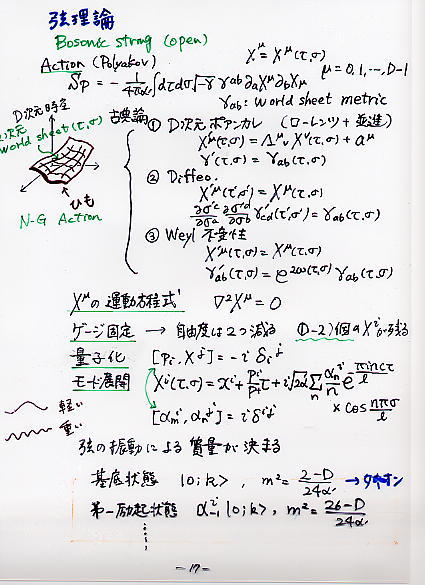 弦理論
Bosonic string (open)
Action (Polyakov)
X^μ = X^μ(τ,σ)
μ = 0,1,…,D-1
S_P = - 1/4πα' ∫dτdσ √-γ γ^ab ∂_a X^μ ∂_b X_μ
γ_ab: World sheet metric
D次元時空
2次元
World sheet (τ,σ)
ひも
N-G Action
古典論
① D次元ポアンカレ (ローレンツ + 並進)
X'^μ(τ,σ) = Λ^μ_ν X^ν(τ,σ) + a^μ
γ'(τ,σ) = γ_ab(τ,σ)
② Diffeo.
X'^μ(τ',σ') = X^μ(τ,σ)
∂σ'^c/∂σ^a ∂σ'^d/∂σ^b γ'_cd(τ',σ') = γ_ab(τ,σ)
③ Weyl 不変性
X'^μ(τ,σ) = X^μ(τ,σ)
γ'_ab(τ,σ) = e^2ω(τ,σ) γ_ab(τ,σ)
X^μの運動方程式 ∇²X^μ = 0
ゲージ固定 → 自由度は2つ減る (D-2)個のX^iが残る
量子化 [P_i, X^j] = -i δ_i^j
モード展開 X^i(τ,σ) = x^i + p^i/p^+ τ + i√2α' Σ_n α_n^i/n e^-πincτ/ℓ
× cos nπσ/ℓ
[α_m^i, α_n^j] = i δ^ij
軽い
重い
弦の振動による質量が決まる
基底状態 |0;k>, m² = 2-D/24α' → タキオン
第一励起状態 α_-1^i |0;k>, m² = 26-D/24α'
-17-